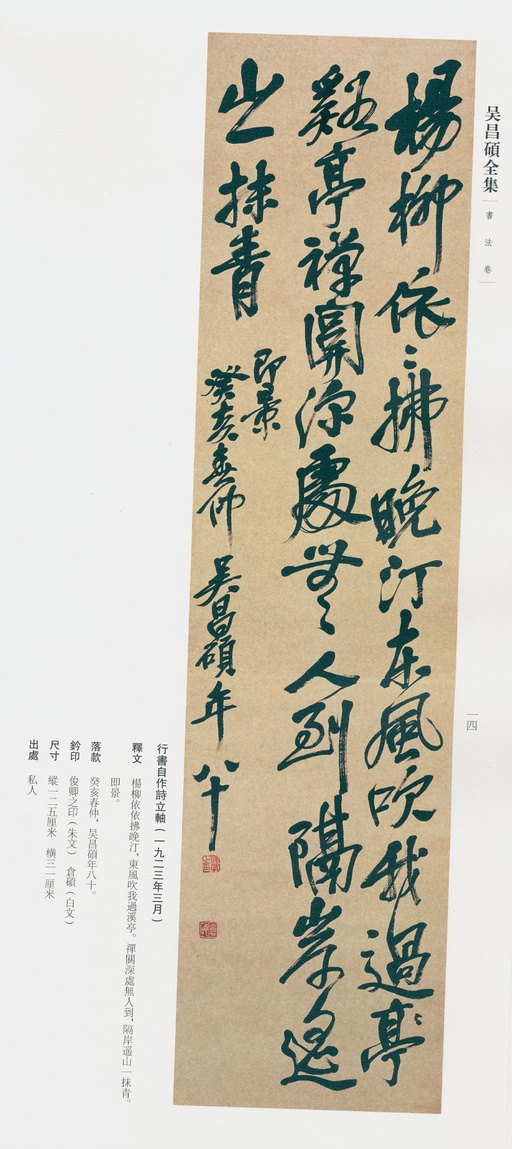 吴昌碩全集
書法卷
一四
楊柳依〻拂晚汀東風吹我過亭
谿亭禪關深處無〻人到隔岸遙
山一抹青
即景
癸亥春仲 吳昌碩年八十
行書自作詩立軸（一九二三年三月）
釋文 楊柳依依拂晚汀，東風吹我過溪亭。禪關深處無人到，隔岸遥山一抹青。
即景。
落款 癸亥春仲，吴昌碩年八十。
鈐印 俊卿之印（朱文） 倉碩（白文）
尺寸 縱一二五厘米 橫三一厘米
出處 私人